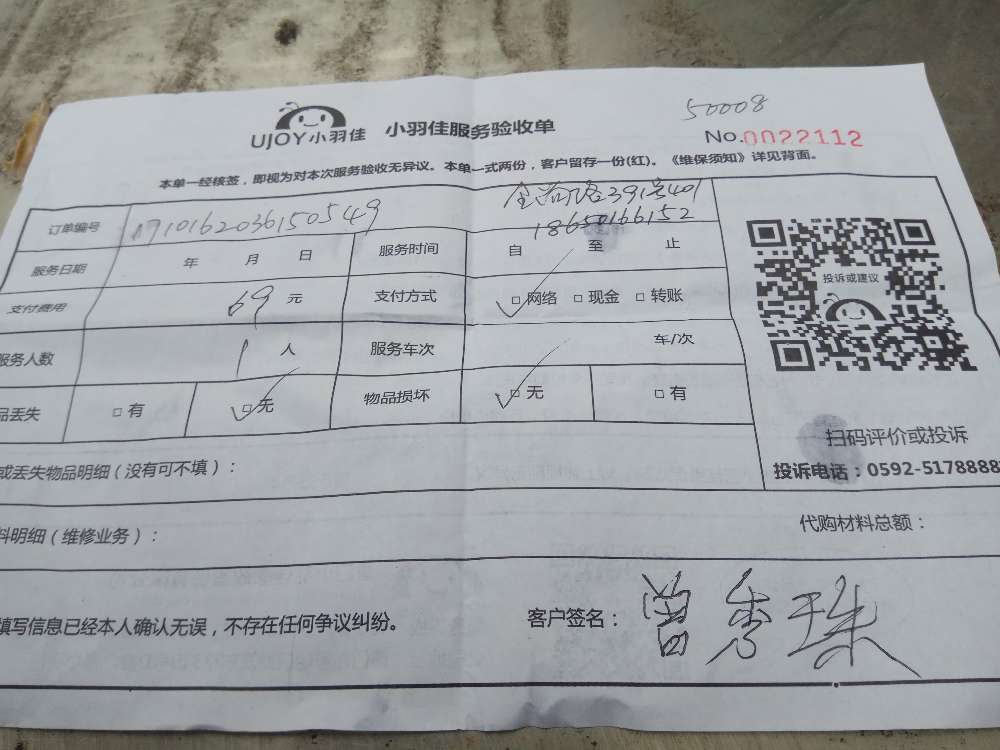 50008
UJOY小羽佳 小羽佳服务验收单
No.0022112
本单一经核签，即视为对本次服务验收无异议。本单一式两份，客户留存一份(红)。《维保须知》详见背面。
订单编号 0710162036150549 路391号401
18650166152
服务日期 年 月 日 服务时间 自 至 止
支付费用 69 元 支付方式 □网络 □现金 □转账
服务人数 1 人 服务车次 车/次
品丢失 □有 □无 物品损坏 □无 □有
投诉或建议
扫码评价或投诉
投诉电话：0592-5178888
或丢失物品明细（没有可不填）：
料明细（维修业务）： 代购材料总额：
填写信息已经本人确认无误，不存在任何争议纠纷。 客户签名：曾秀珠